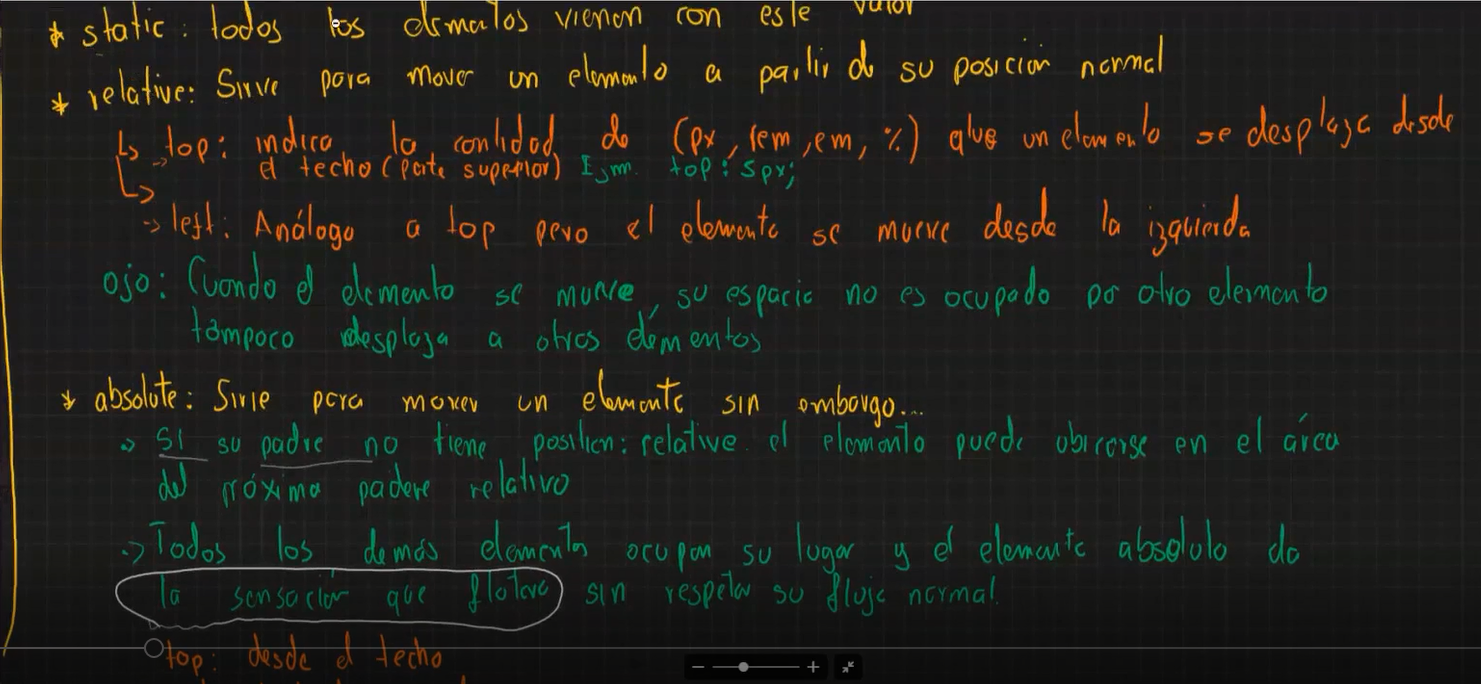 * static: todos los elementos vienen con este valor
* relative: Sirve para mover un elemento a partir de su posición normal
↳ → top: indica la cantidad de (px, rem, em, %) que un elemento se desplaza desde
el techo (parte superior) Ejm. top: 5px;
↳ → left: Análogo a top pero el elemento se mueve desde la izquierda
ojo: Cuando el elemento se mueve, su espacio no es ocupado por otro elemento
tampoco desplaza a otros elementos
* absolute: Sirve para mover un elemento sin embargo...
→ Si su padre no tiene position: relative el elemento puede ubicarse en el área
del próximo padere relativo
→ Todos los demás elementos ocupan su lugar y el elemento absoluto da
la sensación que flotara sin respetar su flujo normal.
top: desde el techo